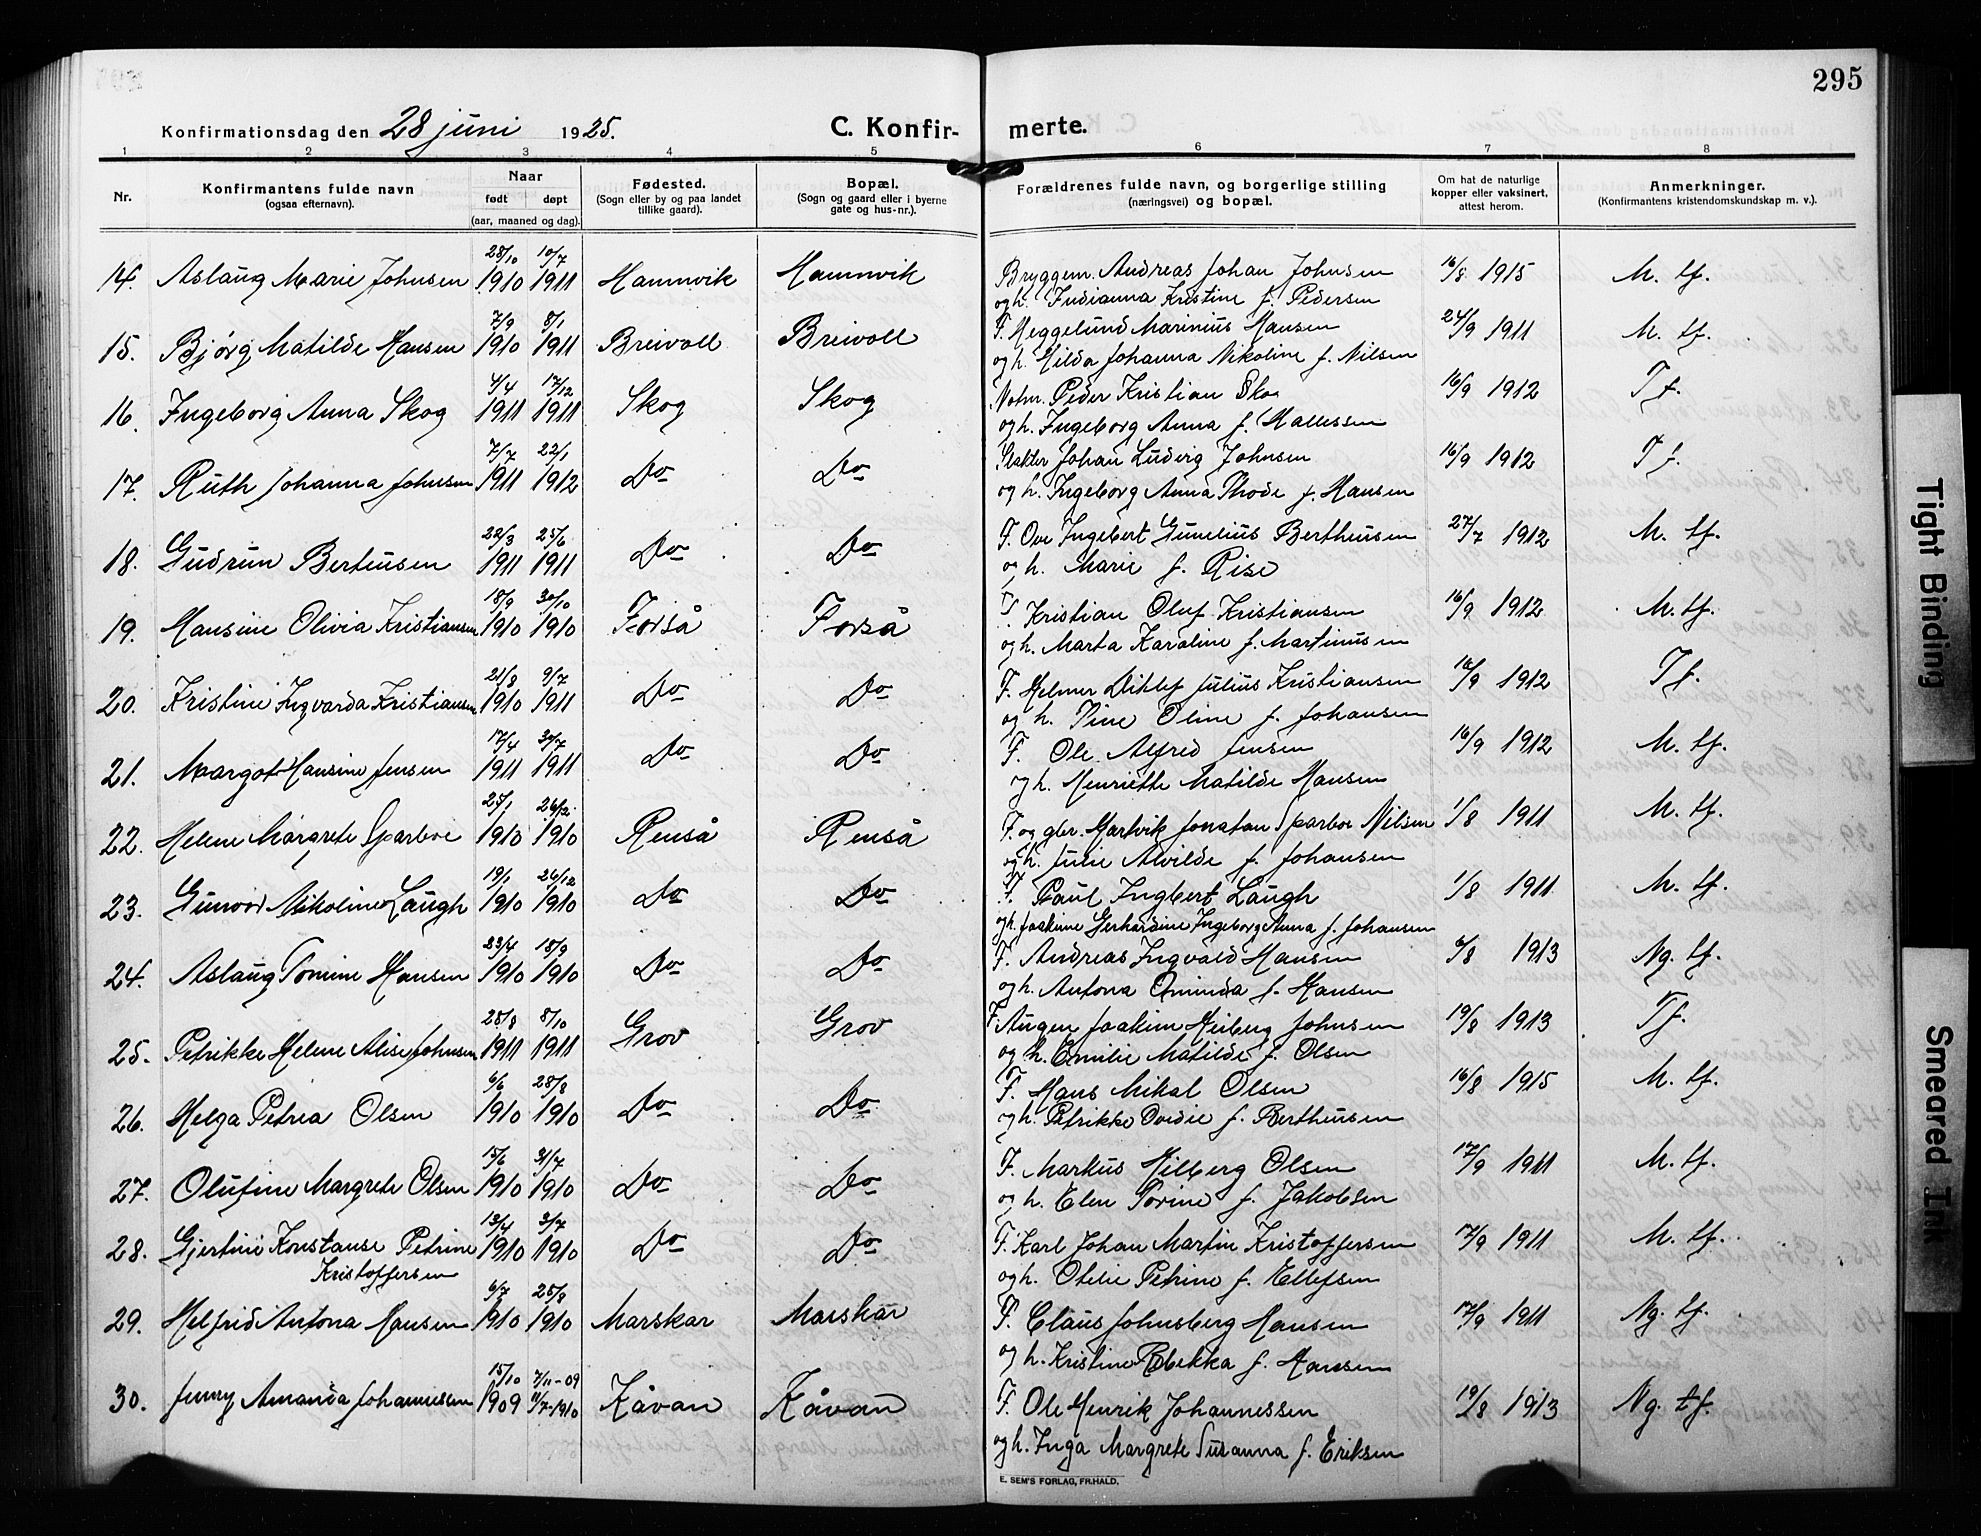 295
Konfirmationsdag den 28 juni 1925. C. Konfirmerte.
1 2 3 4 5 6 7 8
Nr. Konfirmantens fulde navn (ogsaa efternavn). Naar født døpt (aar, maaned og dag). Fødested. (Sogn eller by og paa landet tillike gaard). Bopæl. (Sogn og gaard eller i byerne gate og hus-nr.). Forældrenes fulde navn, og borgerlige stilling (næringsvei) og bopæl. Om hat de naturlige kopper eller vaksinert, attest herom. Anmerkninger. (Konfirmantens kristendomskundskap m. v.).
14. Aslaug Marie Johnsen 28/10 1910 10/7 1911 Hamnvik Hamnvik Bryggem. Andreas Johan Johnsen 16/8 1915 M. tf.
og h. Indianna Kristine f. Pedersen
15. Bjørg Matilde Hansen 7/9 1910 8/1 1911 Breivoll Breivoll F. Heggelund Marinius Hansen 24/9 1911 M. tf.
og h. Hilda Johanna Nikoline f. Nilsen
16. Ingeborg Anna Skog 4/4 1911 17/12 1911 Skog Skog Peder Kristian Skog 16/9 1912 T f.
og h. Ingeborg Anna f. Hallessen
17. Ruth Johanna Johnsen 7/7 1911 22/1 1912 Do Do Slakter Johan Ludvig Johnsen 16/9 1912 T f.
og h. Ingeborg Anna Thode f. Hansen
18. Gudrun Berteusen 22/3 1911 25/6 1911 Do Do F. Ove Ingebert Gunelius Bertheusen 27/7 1912 M. tf.
og h. Marie f. Rise
19. Hansine Olivia Kristiansen 18/9 1910 30/10 1910 Forså Forså F. Kristian Oluf Kristiansen 16/9 1912 M. tf.
og h. Marta Karoline f. Martinussen
20. Kristine Ingvarda Kristiansen 21/8 1910 9/7 1911 Do Do F. Helmer Ditlef Julius Kristiansen 16/9 1912 T f.
og h. Tine Oline f. Johansen
21. Margot Hansine Jensen 17/4 1911 30/7 1911 Do Do F. Ole Alfred Jensen 16/9 1912 M. tf.
og h. Henriette Matilde Hansen
22. Helene Margrete Sparboe 25/1 1910 26/2 1910 Renså Renså F. og gbr. Hartvik Jonatan Sparboe Nilsen 1/8 1911 M. tf.
og h. Julie Alvilde f. Johansen
23. Gunvor Nikoline Laugh 19/1 1910 26/12 1910 Do Do F. Paul Ingbert Laugh 1/8 1911 M. tf.
og h. Joakime Gerhardine Ingeborg Anna f. Johansen
24. Aslaug Tomine Hansen 23/4 1910 18/9 1910 Do Do F. Andreas Ingvald Hansen 6/8 1913 Ng. tf.
og h. Antona Ominda f. Hansen
25. Petrikke Helene Alise Johnsen 28/8 1911 8/10 1911 Grov Grov F. Angen Joakim Heiberg Johnsen 19/8 1913 T f.
og h. Emilie Matilde f. Olsen
26. Helga Petrea Olsen 6/6 1910 28/8 1910 Do Do F. Hans Mikal Olsen 16/8 1915 M. tf.
og h. Petrikke Ovidie f. Bertheusen
27. Olufine Margrete Olsen 15/6 1910 31/7 1910 Do Do F. Markus Hilberg Olsen 17/9 1911 M. tf.
og h. Elen Torine f. Jakobsen
28. Gjertine Konstanse Petrine 13/4 1910 3/7 1910 Do Do F. Karl Johan Martin Kristoffersen 17/9 1911 M. tf.
Kristoffersen og h. Otelie Petrine f. Ellefsen
29. Helfrid Antona Hansen 6/7 1910 25/8 1910 Marskar Marskar F. Claus Johnsberg Hansen 17/9 1911 Ng. tf.
og h. Kristine Rebekka f. Hansen
30. Jenny Amanda Johannessen 15/10 1909 7/11-09 11/7-1910 Kåvan Kåvan F. Ole Henrik Johannessen 19/8 1913 Ng. tf.
og h. Inga Margrete Susanna f. Eriksen
E. SEM'S FORLAG, FR.HALD.
Tight Binding
Smeared Ink